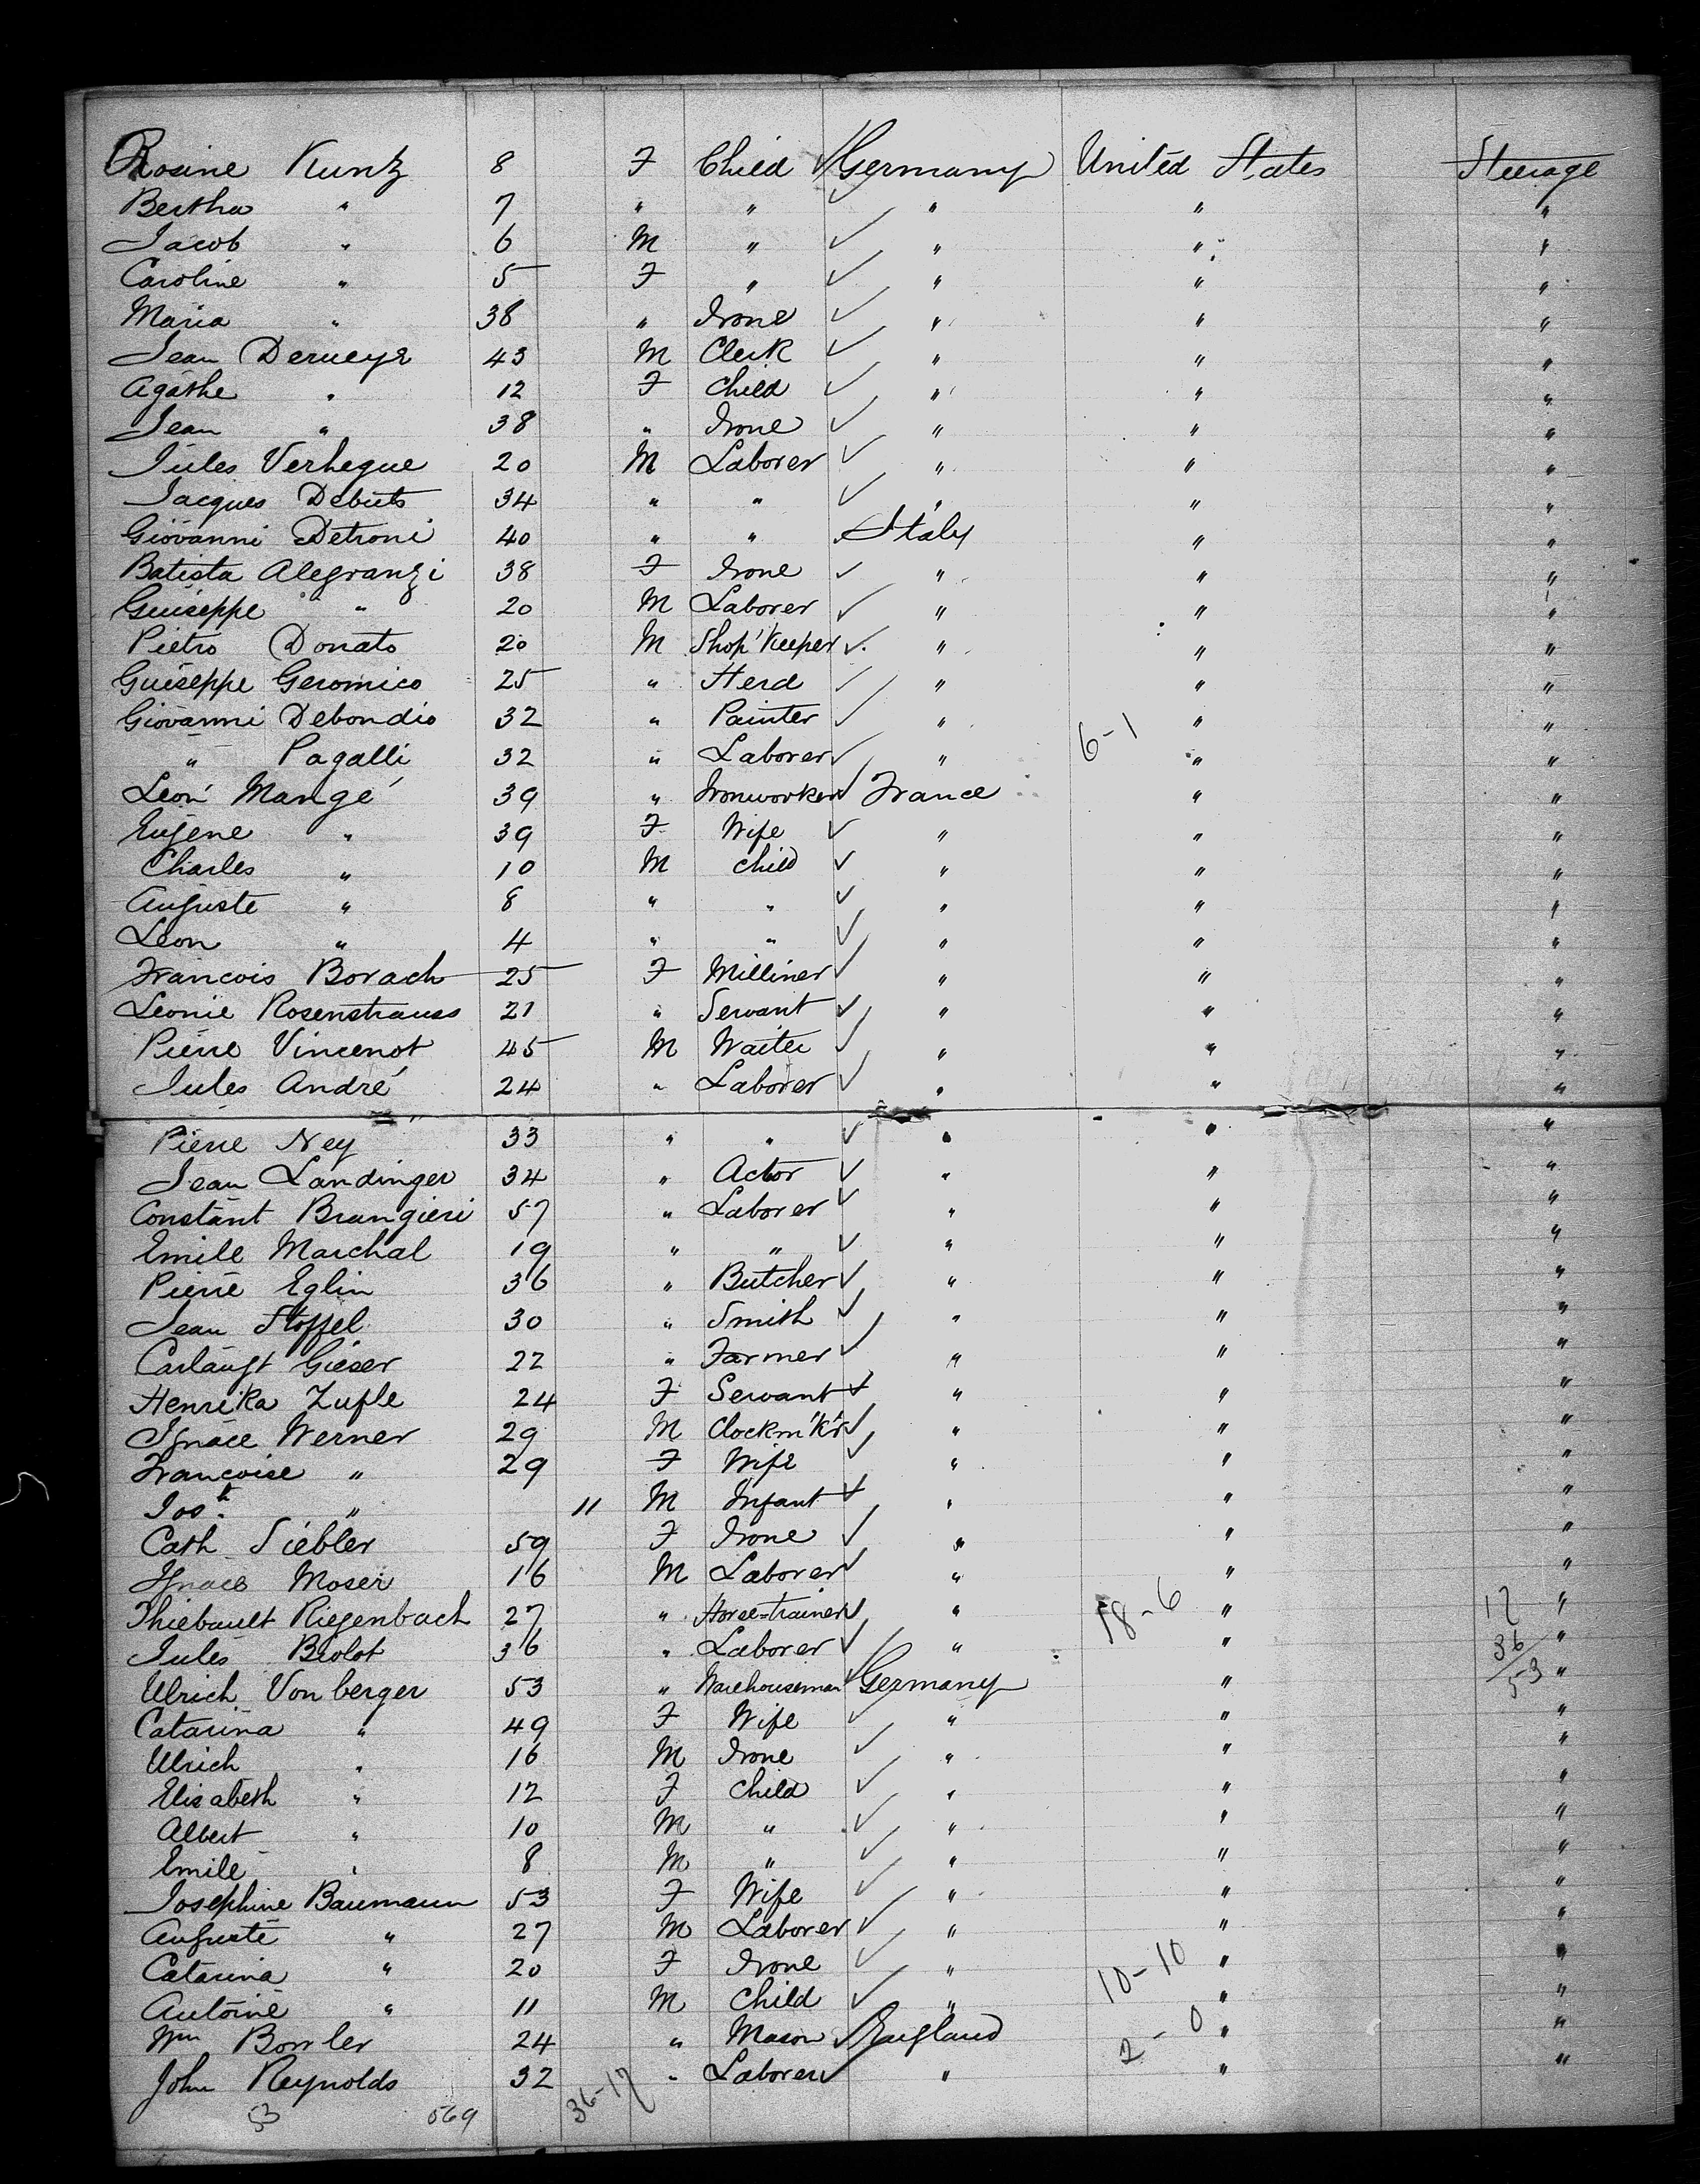 Rosine Kuntz 8 F Child Germany United States Steerage
Bertha " 7 " " " " "
Jacob " 6 M " " " "
Caroline " 5 F " " " "
Maria " 38 " None " " "
Jean Derueyr 43 M Clerk " " "
Agathe " 12 F Child " " "
Jean " 38 " None " " "
Jules Verhegue 20 M Laborer " " "
Jacques Debuts 34 " " " " "
Giovanni Detroni 40 " " Italy " "
Batista Alegranzi 38 F None " " "
Guiseppe " 20 M Laborer " " "
Pietro Donato 20 M Shop'Keeper " " "
Guiseppe Geromico 25 " Herd " " "
Giovanni Debondio 32 " Painter " 6-1 " "
" Pagalli 32 " Laborer " " "
Léon Mangé 39 " Ironworker France " "
Eugene " 39 F Wife " " "
Charles " 10 M Child " " "
Auguste " 8 " " " " "
Leon " 4 " " " " "
Francois Borach 25 F Milliner " " "
Leonie Rosenstrauss 21 " Servant " " "
Pierre Vincenot 45 M Waiter " " "
Jules André 24 " Laborer " " "
Pierre Ney 33 " " " " "
Jean Landinger 34 " Actor " " "
Constant Brangieri 57 " Laborer " " "
Emile Marchal 19 " " " " "
Pierre Eglin 36 " Butcher " " "
Jean Stoffel 30 " Smith " " "
Carlaugt Gieser 22 " Farmer " " "
Henrika Zufle 24 F Servant " " "
Ignace Werner 29 M Clockm'k'r " " "
Francoise " 29 F Wife " " "
Josh. " 11 M Infant " " "
Cath Siebler 59 F None " " "
Ignace Moser 16 M Laborer " " "
Thiebault Riegenbach 27 " Horse=trainer " 18-6 " 17 "
Jules Brolot 36 " Laborer " " 36 "
Ulrich Von berger 53 " Warehouseman Germany " 53 "
Catarina " 49 F Wife " " "
Ulrich " 16 M None " " "
Elisabeth " 12 F Child " " "
Albert " 10 M " " " "
Emile " 8 M " " " "
Josephine Baumann 53 F Wife " " "
Auguste " 27 M Laborer " " "
Catarina " 20 F None " 10-10 " "
Antoine " 11 M Child " " "
Wm Bowler 24 " Mason England 2-0 " "
John Reynolds 32 " Laborer " " "
53 569 36-17